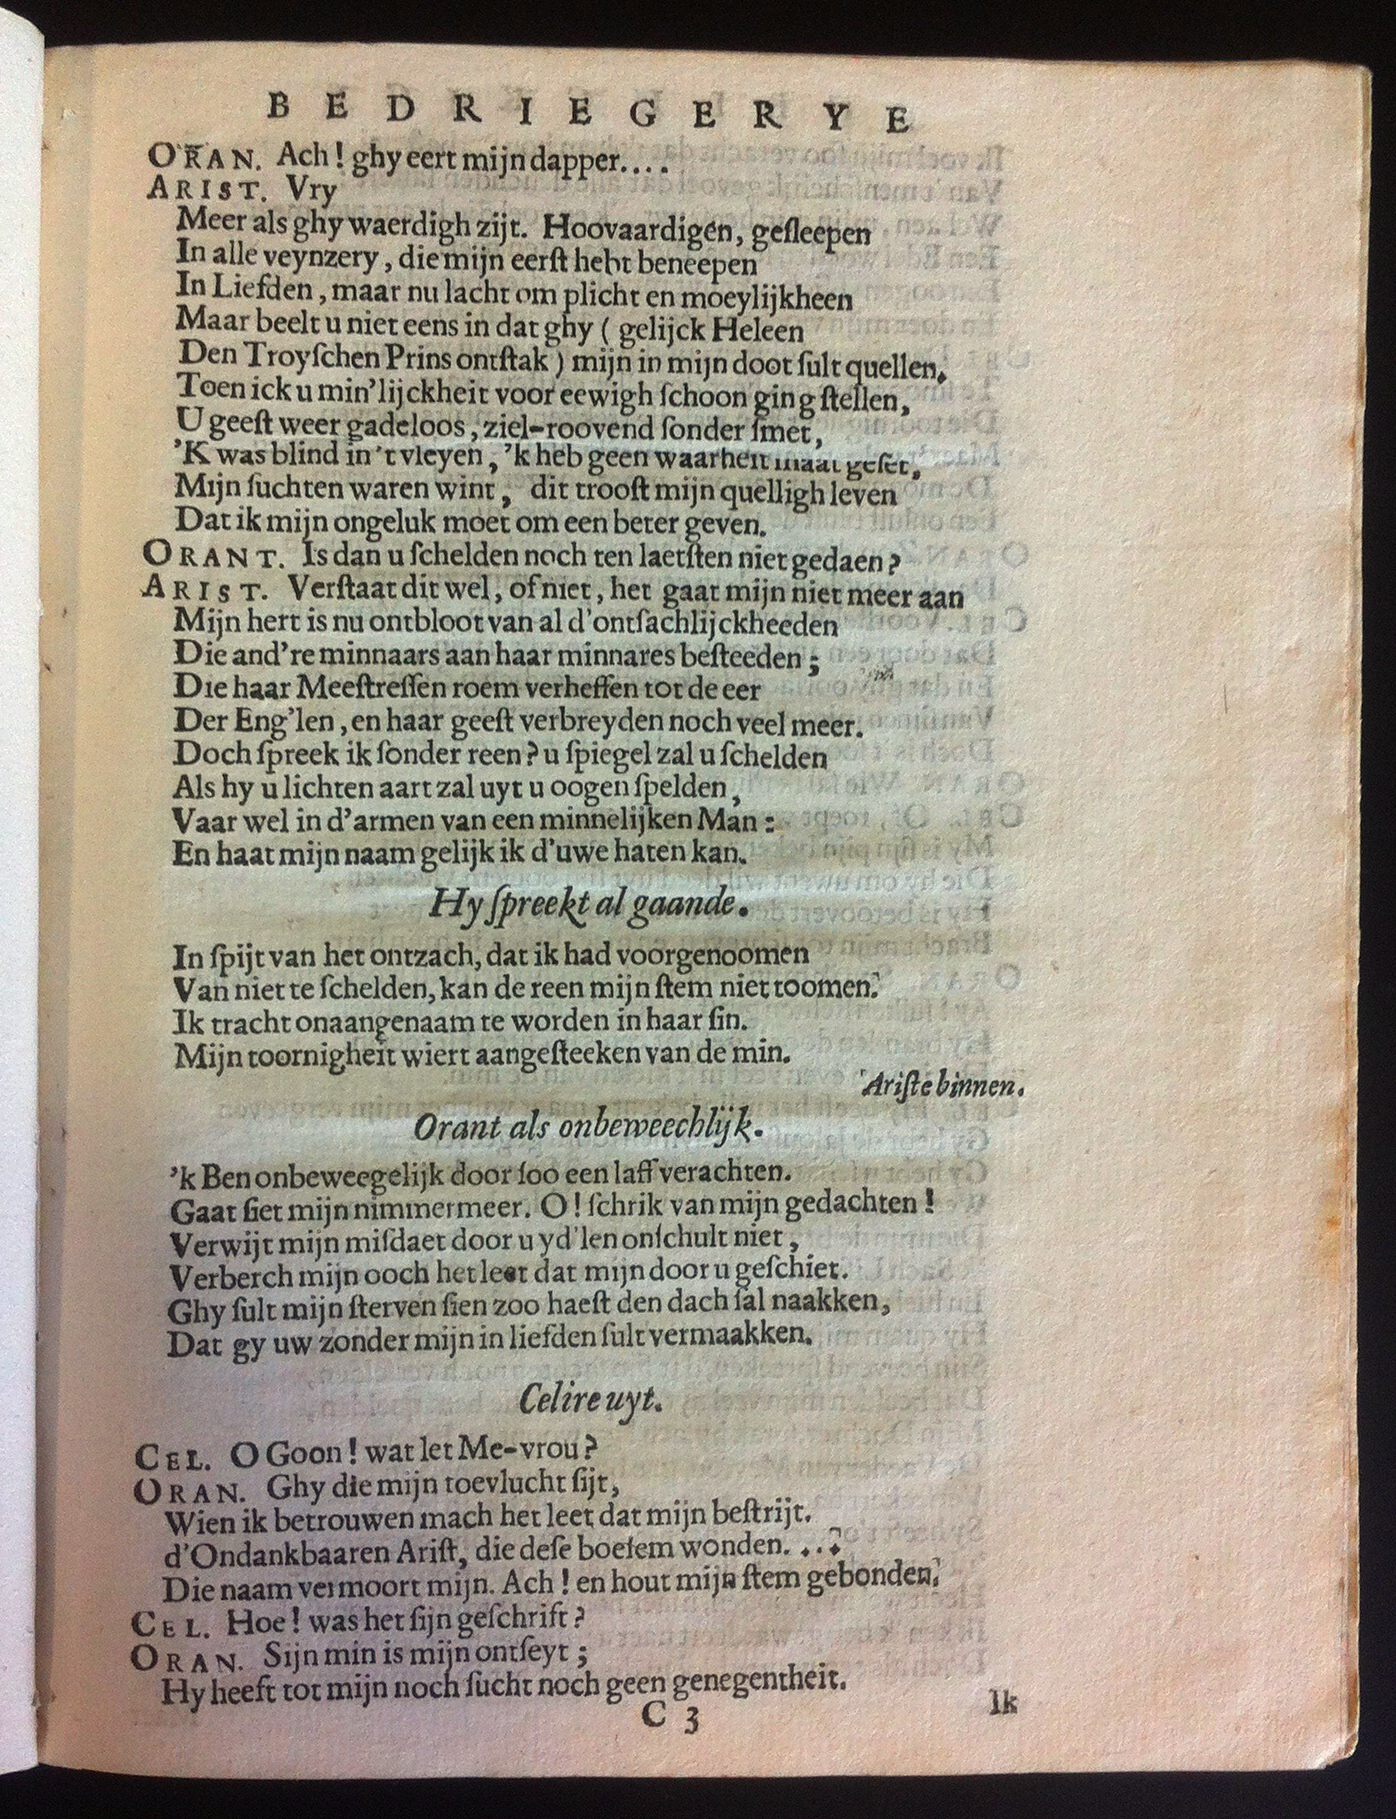 BEDRIEGERYE
ORAN. Ach! ghy eert mijn dapper....
ARIST. Vry
Meer als ghy waerdigh zijt. Hoovaardigen, geſleepen
In alle veynzery, die mijn eerſt hebt beneepen
In Liefden, maar nu lacht om plicht en moeylijkheen
Maar beelt u niet eens in dat ghy ( gelijck Heleen
Den Troyſchen Prins ontſtak ) mijn in mijn doot ſult quellen,
Toen ick u min'lijckheit voor eewigh ſchoon ging ſtellen,
U geeſt weer gadeloos, ziel-roovend ſonder ſmet,
'K was blind in 't vleyen, 'k heb geen waarheit maat geſet,
Mijn ſuchten waren wint, dit trooſt mijn quelligh leven
Dat ik mijn ongeluk moet om een beter geven.
ORANT. Is dan u ſchelden noch ten laetſten niet gedaen?
ARIST. Verſtaat dit wel, of niet, het gaat mijn niet meer aan
Mijn hert is nu ontbloot van al d'ontſachlijckheeden
Die and're minnaars aan haar minnares beſteeden;
Die haar Meeſtreſſen roem verheffen tot de eer
Der Eng'len, en haar geeſt verbreyden noch veel meer.
Doch ſpreek ik ſonder reen? u ſpiegel zal u ſchelden
Als hy u lichten aart zal uyt u oogen ſpelden,
Vaar wel in d'armen van een minnelijken Man:
En haat mijn naam gelijk ik d'uwe haten kan.
Hy ſpreekt al gaande.
In ſpijt van het ontzach, dat ik had voorgenoomen
Van niet te ſchelden, kan de reen mijn ſtem niet toomen.
Ik tracht onaangenaam te worden in haar ſin.
Mijn toornigheit wiert aangeſteeken van de min.
Ariſte binnen.
Orant als onbeweechlijk.
'k Ben onbeweegelijk door ſoo een laff verachten.
Gaat ſiet mijn nimmermeer. O! ſchrik van mijn gedachten!
Verwijt mijn miſdaet door u yd'len onſchult niet,
Verberch mijn ooch het leet dat mijn door u geſchiet.
Ghy ſult mijn ſterven ſien zoo haeſt den dach ſal naakken,
Dat gy uw zonder mijn in liefden ſult vermaakken.
Celire uyt.
CEL. O Goon! wat let Me-vrou?
ORAN. Ghy die mijn toevlucht ſijt,
Wien ik betrouwen mach het leet dat mijn beſtrijt.
d'Ondankbaaren Ariſt, die deſe boeſem wonden....
Die naam vermoort mijn. Ach! en hout mijn ſtem gebonden.
CEL. Hoe! was het ſijn geſchrift?
ORAN. Sijn min is mijn ontſeyt;
Hy heeft tot mijn noch ſucht noch geen genegentheit.
C 3
Ik